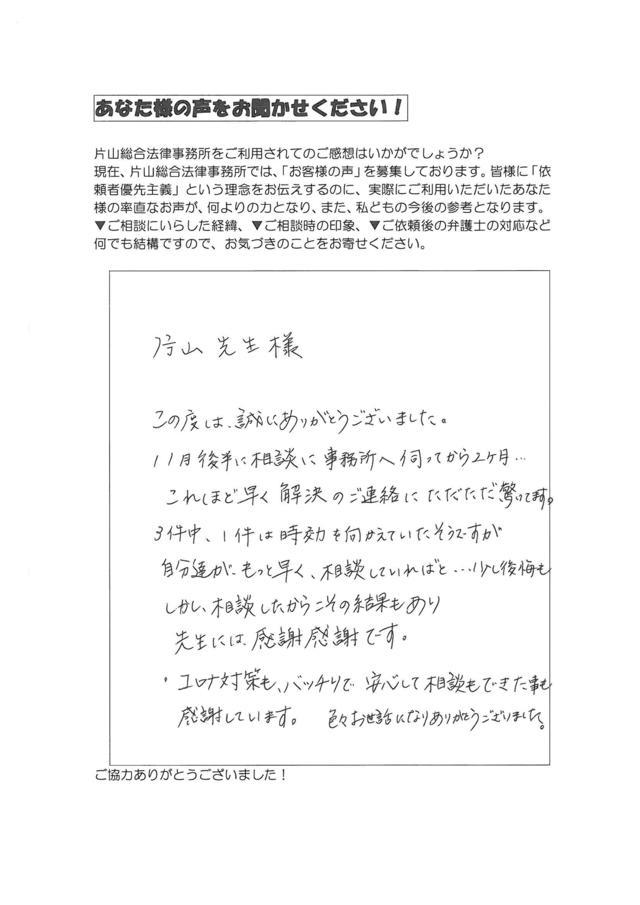 あなた様の声をお聞かせください！
片山総合法律事務所をご利用されてのご感想はいかがでしょうか？
現在、片山総合法律事務所では、「お客様の声」を募集しております。皆様に「依
頼者優先主義」という理念をお伝えするのに、実際にご利用いただいたあなた
様の率直なお声が、何よりの力となり、また、私どもの今後の参考となります。
▼ご相談にいらした経緯、▼ご相談時の印象、▼ご依頼後の弁護士の対応など
何でも結構ですので、お気づきのことをお寄せください。
片山先生様
この度は、誠にありがとうございました。
11月後半に相談に事務所へ伺ってから2ケ月…
これほど早く解決のご連絡にただただ驚いてます。
3件中、1件は時効を向かえていたそうですが
自分達が、もっと早く、相談していればと…少し後悔も
しかし、相談したからこその結果もあり
先生には、感謝感謝です。
・コロナ対策も、バッチリで安心して相談もできた事も
感謝しています。 色々お世話になりありがとうございました。
ご協力ありがとうございました！